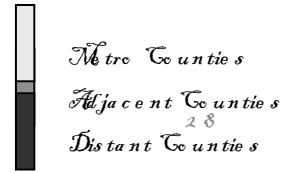 Metro Counties
Adjacent Counties
28
Distant Counties